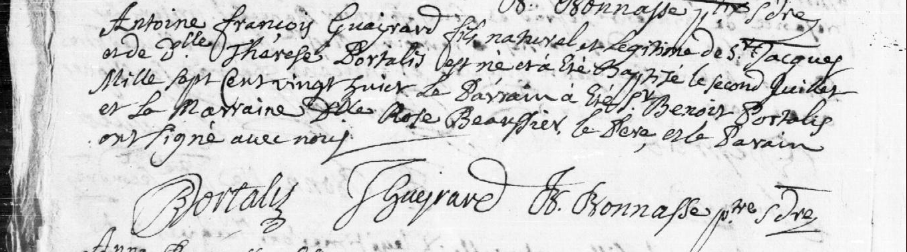 B. Bonnasse ptre Sdre
Antoine François Gueyrard fils naturel et legitime de Sr. Jacques
et de Dlle Therese Portalis est né et à Eté Baptizé le second Juillet
Mille sept Cent vingt huict Le Parrain à Eté Sr Benoit Portalis
et La Marraine Dlle Rose Beaussier le Pere, et le Parain
ont signé avec nous
Portalis JGueyrard B. Bonnasse ptre Sdre